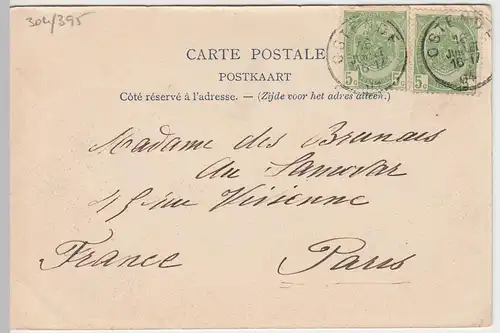 304/395
CARTE POSTALE
POSTKAART
Côté réservé à l'adresse. — (Zijde voor het adres alleen.)
5c 5c 5c
OSTENDE
OSTENDE
Madame des Brunais
au Samovar
rue Vivienne
France Paris